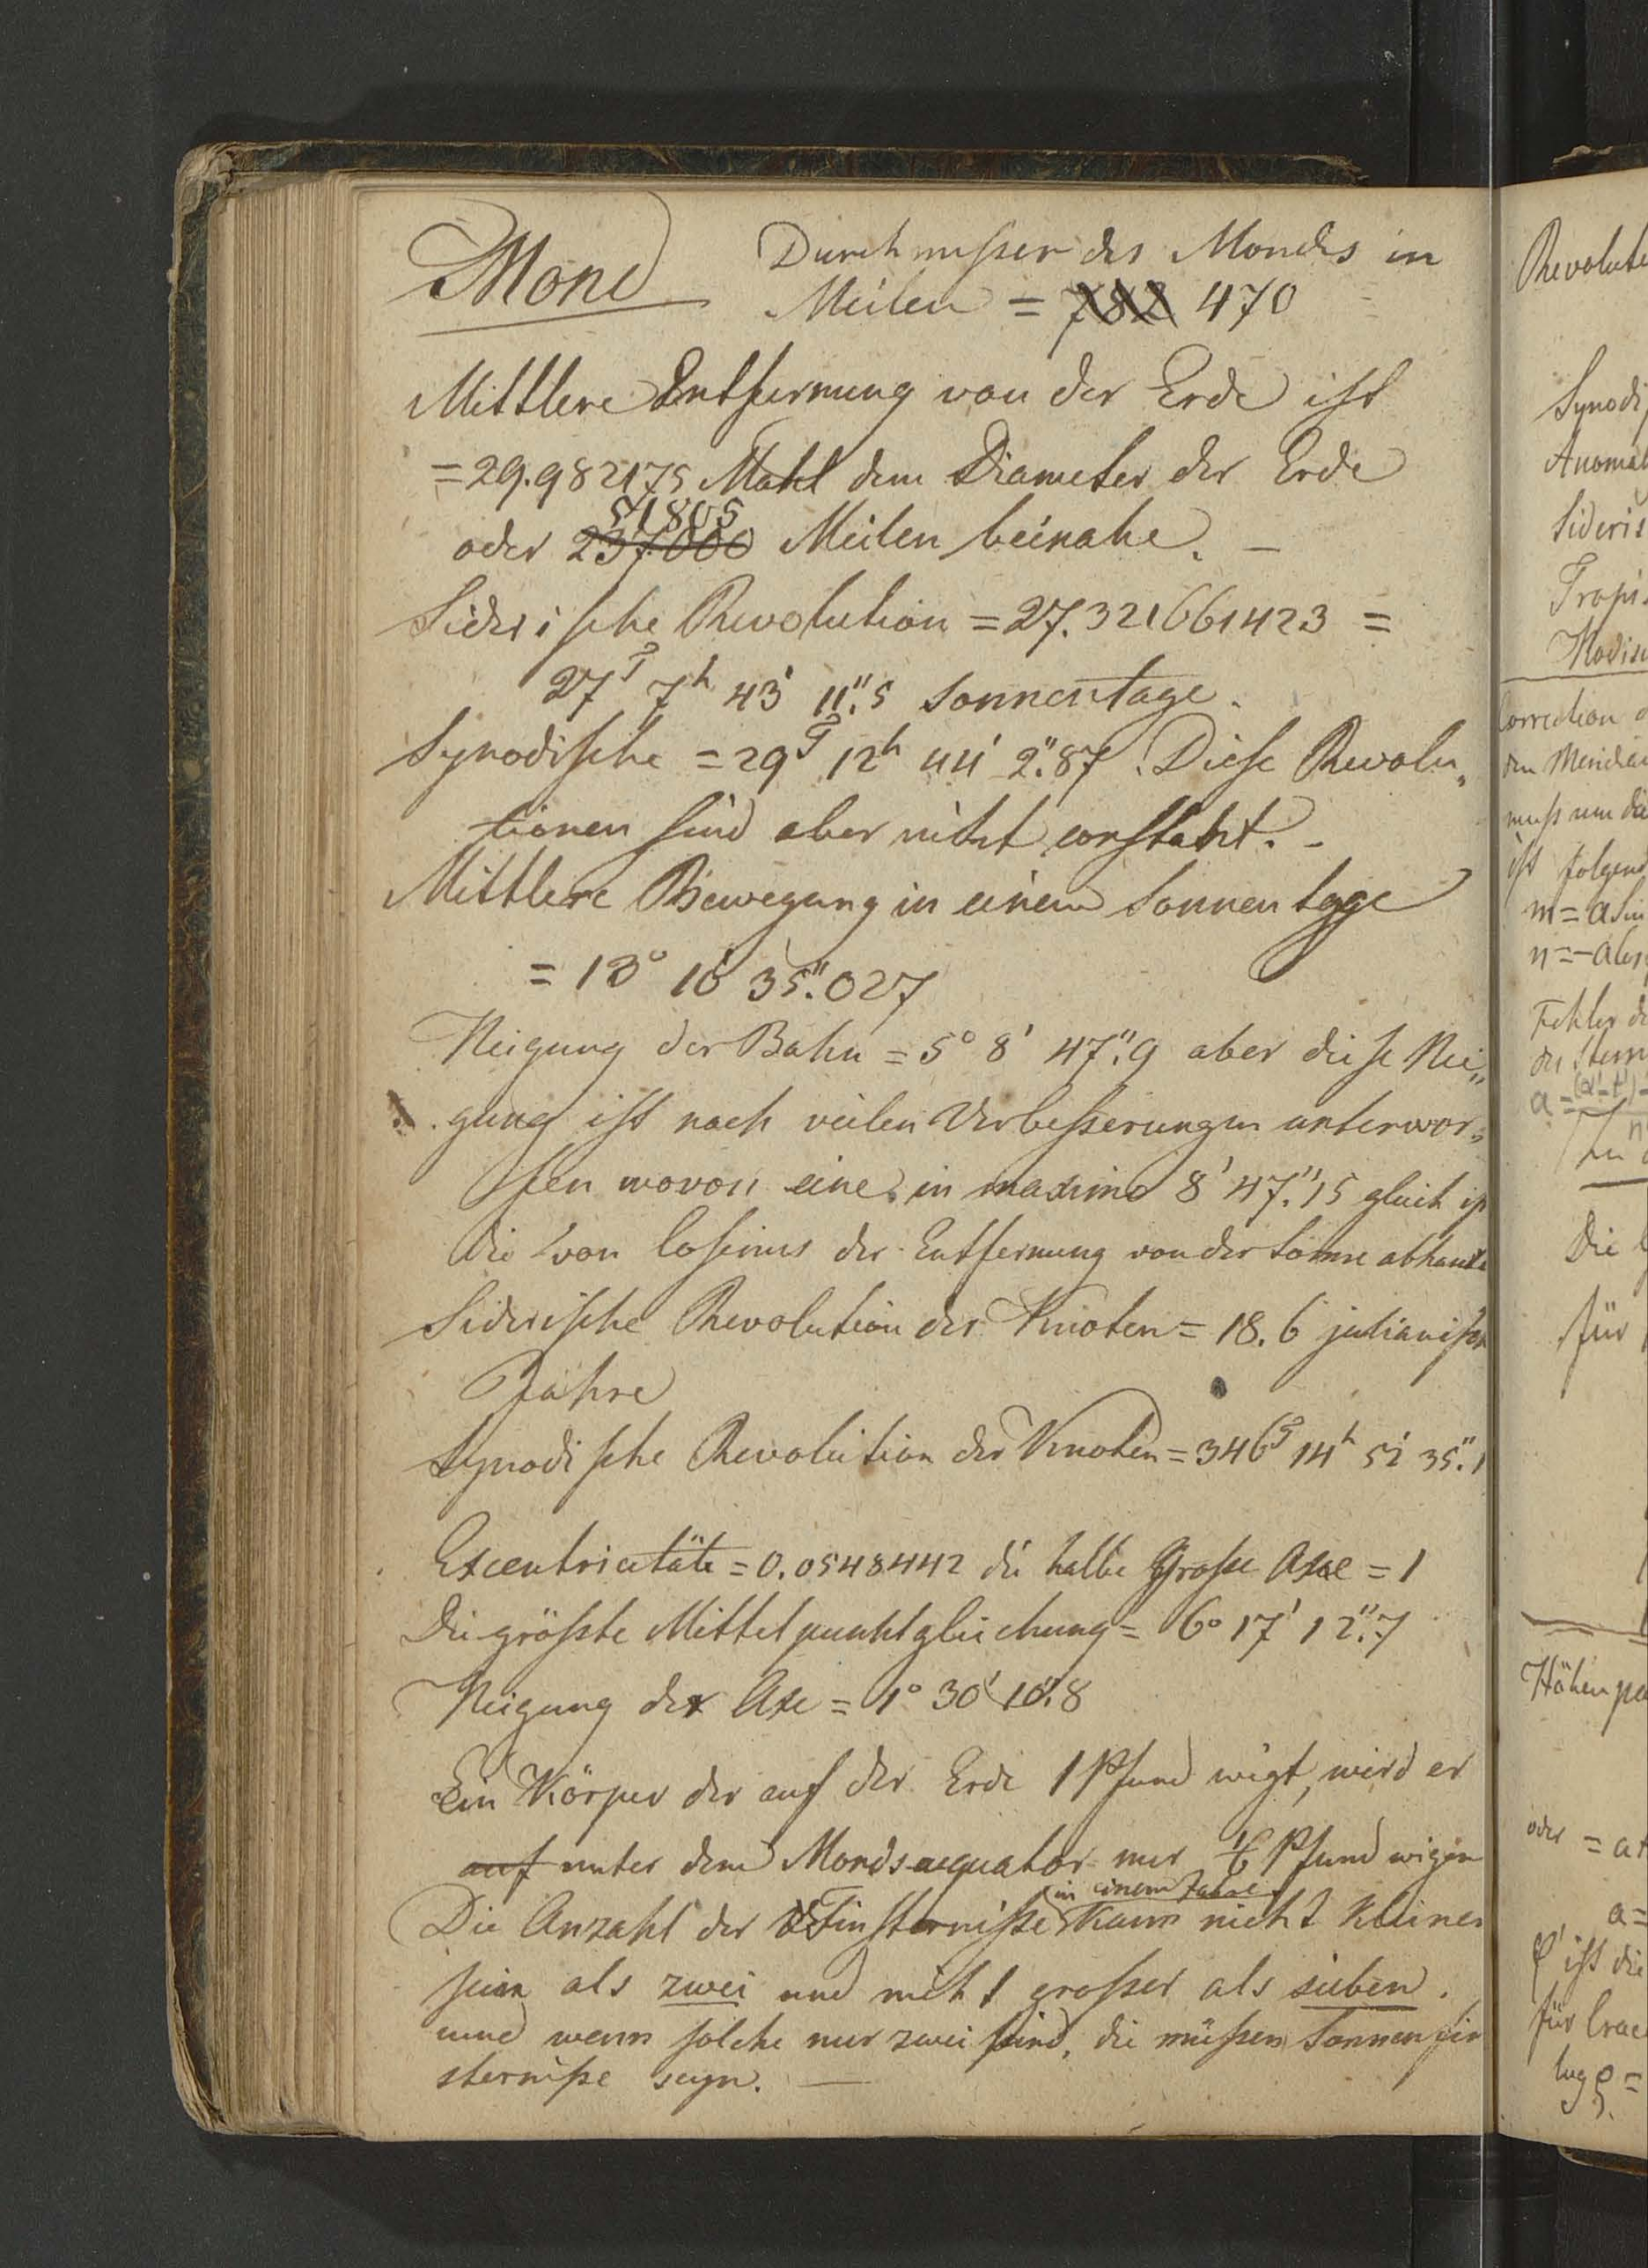 Mond
Durchmesser des Mondes in
Meilen = 782 470
Mittlere Entfernung von der Erde ist
= 29.982175 Mahl dem Diameter der Erde
51805
oder 237000 Meilen beinahe. —
Siderische Revolution = 27.321661423 =
27T 7h 43' 11".5 Sonnentage.
Synodische = 29T 12h 44' 2".87. Diese Revolu„
tionen sind aber nicht constant. -
Mittlere Bewegung in einem Sonnentage
= 13° 10' 35".027
Neigung der Bahn = 5° 8' 47".9 aber diese Nei„
gung ist noch veilen Verbesserungen unterwor„
fen wovon eine in maximo 8' 47".15 gleich is
die von Cosinus der Entfernung von der Sonne abhan
Siderische Revolution der Knoten = 18.6 julianisch
Jahre
Synodische Revolution der Knoten = 346T 14h 52' 35".1
Excentricität = 0.0548442 die halbe Grosse Axe = 1
Die grösste Mittelpunktgleichung = 6° 17' 12".7
Neigung der Axe = 1° 30' 10".8
Ein Körper der auf der Erde 1 Pfund wigt, wird er
auf unter dem Mondsaequator nur 1/6 Pfund wigen
in einem Jahre
Die Anzahl der Finsternisse kann nicht kleiner
sein als zwei und nicht grosser als sieben.
und wenn solche nur zwei sind, die müssen Sonnenfin
sternisse seyn. —
Revolut
Synodi
Anomal
Sideris
Tropis
Correction d
den Meridian
muss um die
ist folgend
m = a Sin
n = - a Cos
Fehler d
des Stern
Die
für
Höhenpa
oder = a+
a =
φ' ist die
für Crac
log ρ =